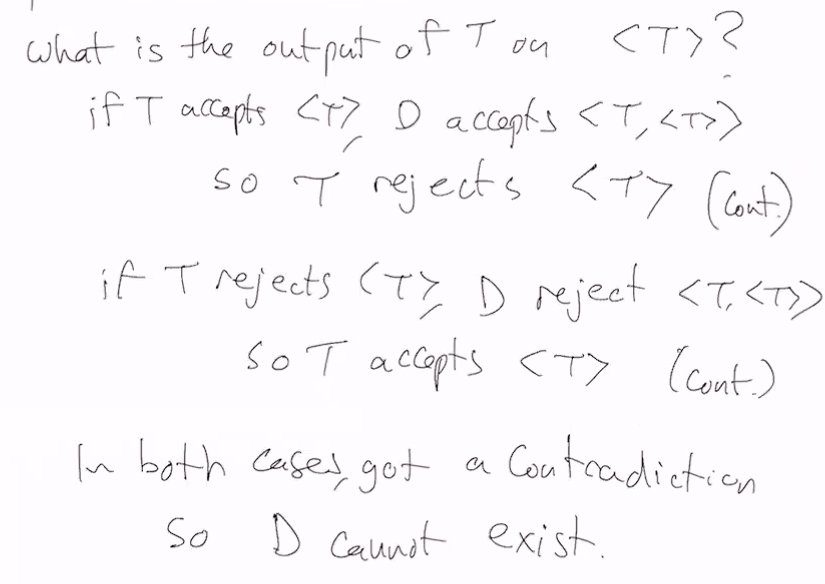 what is the output of T on <T>?
if T accepts <T>, D accepts <T,<T>>
so T rejects <T> (Cont.)
if T rejects <T>, D reject <T,<T>>
so T accepts <T> (Cont.)
In both cases, got a Contradiction
So D Cannot exist.